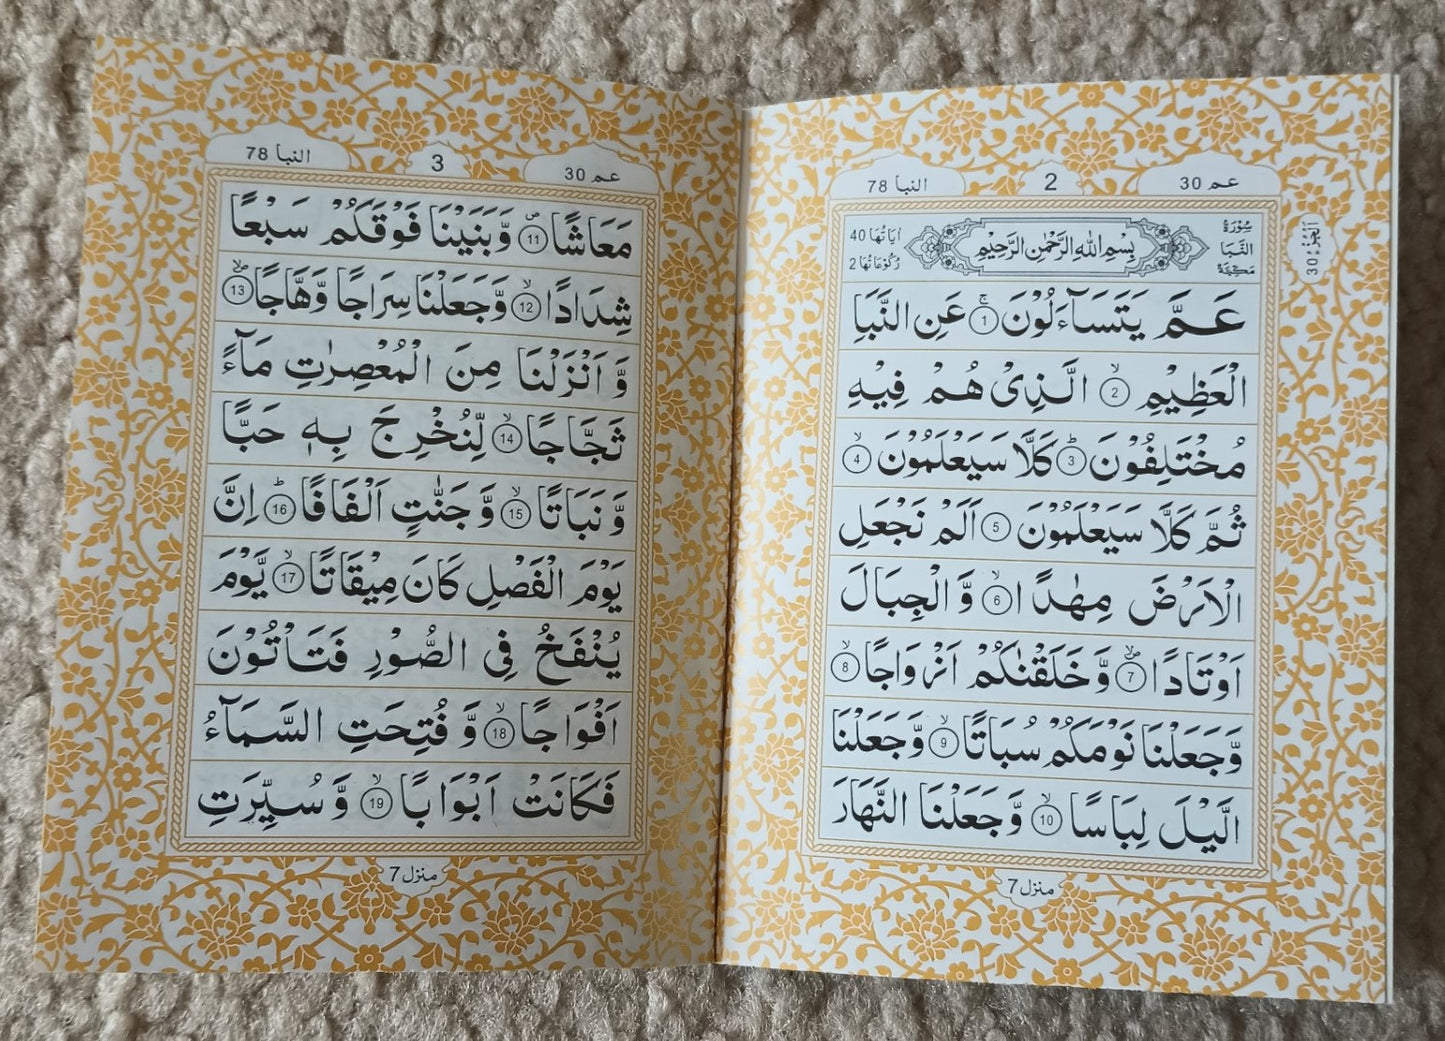 عم 30
2
النبا 78
اَلْجُزْءُ 30
سُوْرَةُ
النَّبَا
مَكِّيَّةٌ
بِسْمِ اللهِ الرَّحْمٰنِ الرَّحِيْمِ
اٰيَاتُهَا 40
رُكُوْعَاتُهَا 2
عَمَّ يَتَسَآءَلُوْنَ ۚ 1 عَنِ النَّبَاِ
الْعَظِيْمِ ۙ 2 الَّذِيْ هُمْ فِيْهِ
مُخْتَلِفُوْنَ ؕ 3 كَلَّا سَيَعْلَمُوْنَ ۙ 4
ثُمَّ كَلَّا سَيَعْلَمُوْنَ 5 اَلَمْ نَجْعَلِ
الْاَرْضَ مِهٰدًا ۙ 6 وَّالْجِبَالَ
اَوْتَادًا ۪ۙ 7 وَّخَلَقْنٰكُمْ اَزْوَاجًا ۙ 8
وَّجَعَلْنَا نَوْمَكُمْ سُبَاتًا ۙ 9 وَّجَعَلْنَا
الَّيْلَ لِبَاسًا ۙ 10 وَّجَعَلْنَا النَّهَارَ
منزل 7
عم 30
3
النبا 78
مَعَاشًا ۪ 11 وَّبَنَيْنَا فَوْقَكُمْ سَبْعًا
شِدَادًا ۙ 12 وَّجَعَلْنَا سِرَاجًا وَّهَّاجًا ۪ۙ 13
وَّاَنْزَلْنَا مِنَ الْمُعْصِرٰتِ مَآءً
ثَجَّاجًا ۙ 14 لِّنُخْرِجَ بِهٖ حَبًّا
وَّنَبَاتًا ۙ 15 وَّجَنّٰتٍ اَلْفَافًا ؕ 16 اِنَّ
يَوْمَ الْفَصْلِ كَانَ مِيْقَاتًا ۙ 17 يَّوْمَ
يُنْفَخُ فِي الصُّوْرِ فَتَاْتُوْنَ
اَفْوَاجًا ۙ 18 وَّفُتِحَتِ السَّمَآءُ
فَكَانَتْ اَبْوَابًا ۙ 19 وَّسُيِّرَتِ
منزل 7